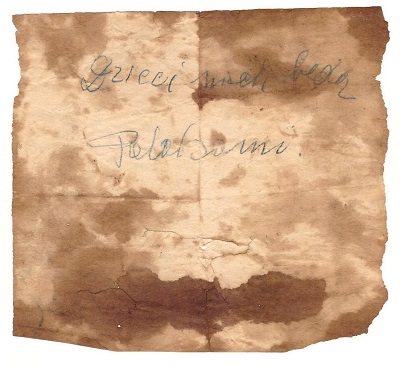 Dzieci niech będą
Polakami.